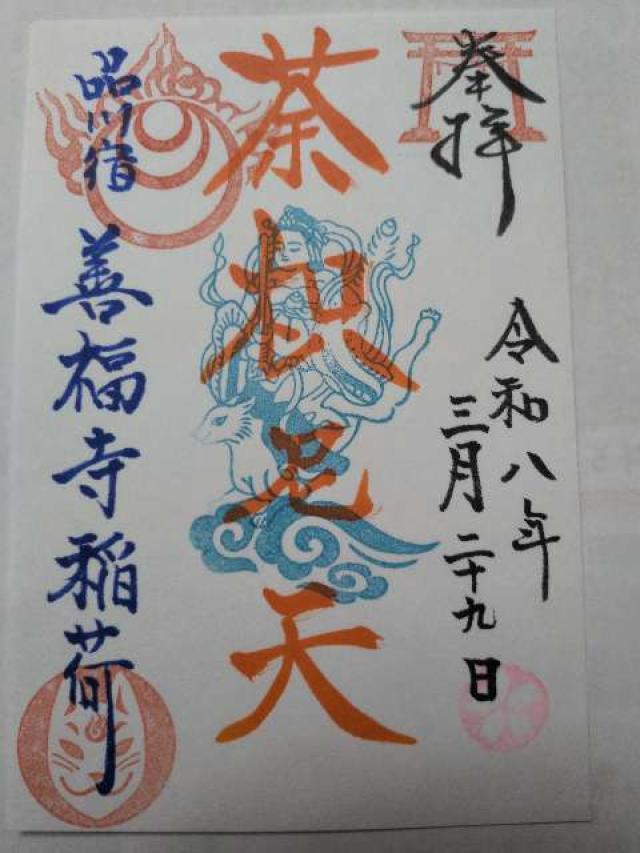 奉拝
令和八年
三月二十九日
荼枳尼天
品川宿 善福寺稲荷